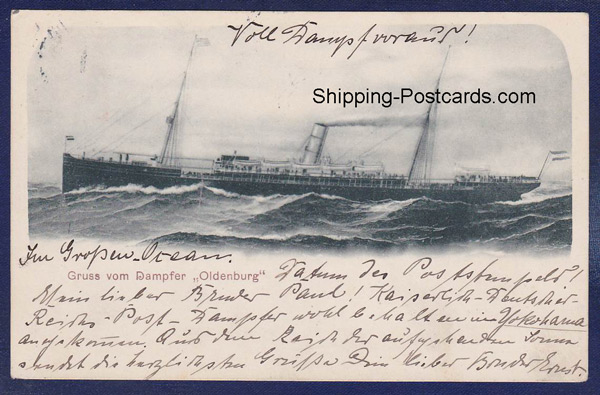 Voll Dampf voraus!
Shipping-Postcards.com
Im Großen Ocean.
Gruss vom Dampfer „Oldenburg“
Datum des Poststempels!
Mein lieber Bruder Paul! Kaiserlich-Deutscher
Reichs-Post-Dampfer wohlbehalten in Yokohama
angekommen. Aus dem Reich der aufgehenden Sonne
sendet die herzlichsten Grüße Dein lieber Bruder Ernst.